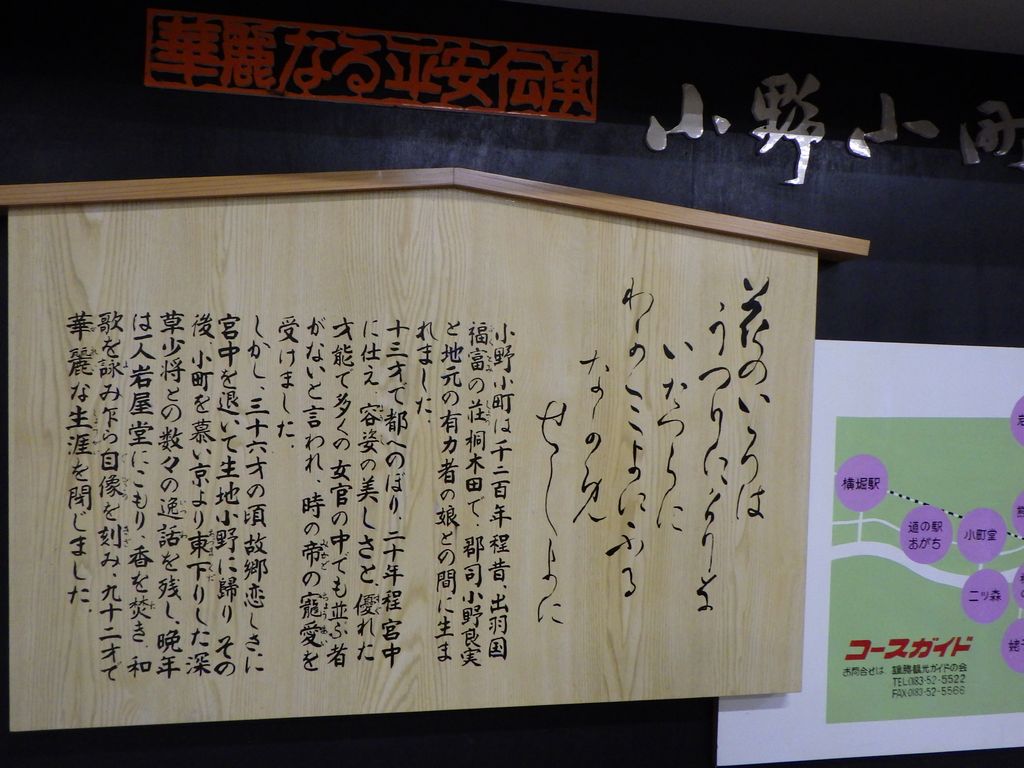 華麗なる平安伝承
小野小町
花のいろは
うつりにけりな
いたづらに
わがみよにふる
ながめ
せしまに
小野小町は千二百年程昔、出羽国
福富の荘桐木田で、郡司小野良実
と地元の有力者の娘との間に生ま
れました。
十三才で都へのぼり、二十年程宮中
に仕え 容姿の美しさと、優れた
才能で多くの女官の中でも並ぶ者
がないと言われ、時の帝の寵愛を
受けました。
しかし、三十六才の頃故郷恋しさに
宮中を退いて生地小野に帰り その
後、小町を慕い京より東下りした深
草少将との数々の逸話を残し、晩年
は一人岩屋堂にこもり、香を焚き、和
歌を詠み乍ら自像を刻み、九十二才で
華麗な生涯を閉じました。
横堀駅
道の駅
おがち
小町堂
二ツ森
コースガイド
お問合せは 雄勝観光ガイドの会
TEL0183-52-5522
FAX0183-52-5566